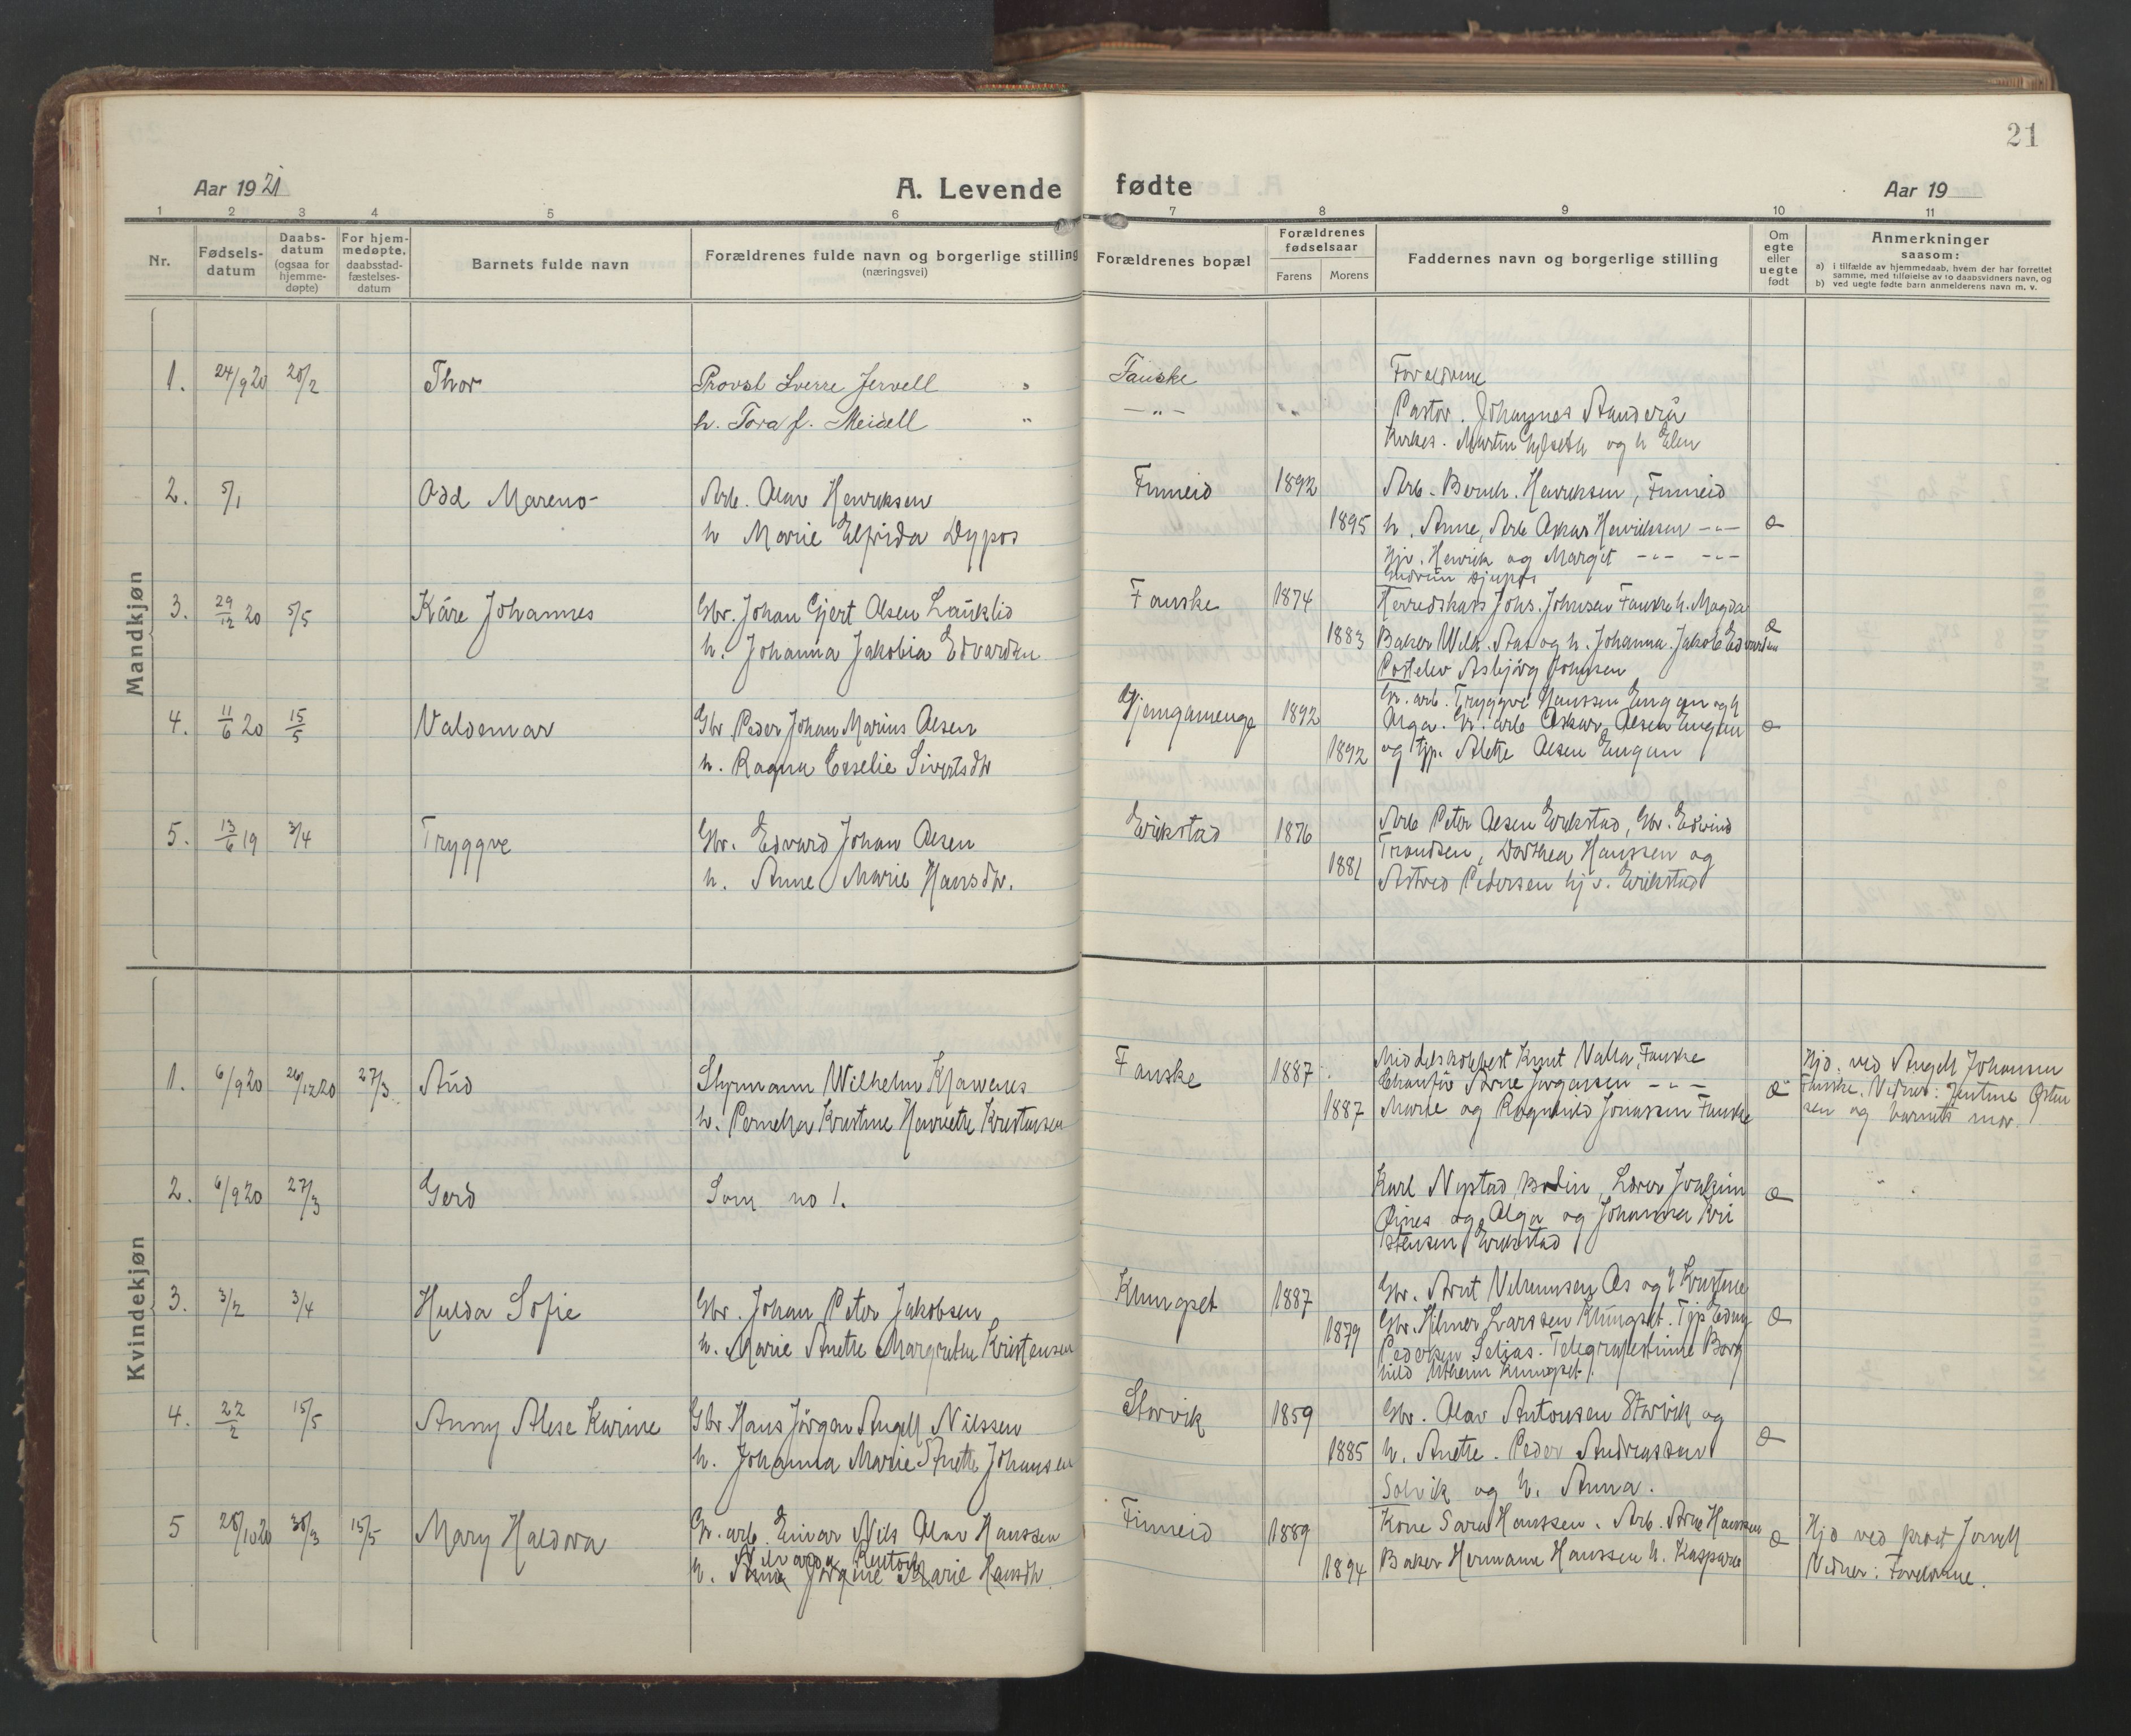 21
Aar 1921
A. Levende fødte
Aar 19
1 2 3 4 5 6 7 8 9 10 11
Nr.
Fødsels-
datum
Daabs-
datum
(ogsaa for
hjemme-
døpte)
For hjem-
medøpte,
daabsstad-
fæstelses-
datum
Barnets fulde navn
Forældrenes fulde navn og borgerlige stilling
(næringsvei)
Forældrenes bopæl
Forældrenes
fødselsaar
Farens Morens
Faddernes navn og borgerlige stilling
Om
egte
eller
uegte
født
Anmerkninger
saasom:
a) i tilfælde av hjemmedaab, hvem der har forrettet
samme, med tilføielse av to daabsvidners navn, og
b) ved uegte fødte barn anmelderens navn m. v.
Mandkjøn
1. 24/9 20 20/2 Thor Provst Sverre Jervell Fauske Foreldrene
h. Tora f. Meidell — " — Pastor. Johannes
Martin og h Elen
2. 5/1 Odd Mareno Arb. Olav Henriksen Finneid 1892 Arb. Bernh. Henriksen, Finneid
h Marie Elfrida Dypos 1895 h. Anne, Arb Oskar Henriksen -"- e
Hjv. Henrik og Margit -"- -"-
Gudrun Djupos
3. 29/12 20 5/5 Kåre Johannes Gbr. Johan Gjert Olsen Lauklid Fauske 1874 Herredskass Johs. Johnsen Fauske h. Magda
h. Johanna Jakobia Edvardsen 1883 Baker Wilh. Aas og h. Johanna. Jakob Edvardsen e
Postelev Asbjörg Johnsen
4. 11/6 20 15/5 Valdemar Gbr. Peder Johan Marius Olsen Gjemgamenge 1892 Gr. arb. Tryggve Hanssen Engan og h
Olga. Gr. arb Oskar Olsen Engan e
h. Ragna Esselie Sivertsdtr 1892 og tjp. Alette Olsen Engan
5. 13/6 19 3/4 Tryggve Gbr. Edvard Johan Olsen Erikstad 1876 Arb Peter Olsen Erikstad, Gbr. Edvind
Trondsen, Dorthea Hanssen og
h. Anne Marie Hansdtr. 1881 Astrid Pedersen hjv. Erikstad
Kvindekjøn
1. 6/9 20 26/12 20 27/3 Aud Styrmann Wilhelm Kjawenes Fauske 1887 Knut Valla, Fauske
Chauför Arne Jørgensen -"-
h. Pernelha Kristine Henriette Kristensen 1887 Marie og Ragnhild Jonassen Fauske e
Hjd. ved Angell Johansen
Fauske. Vidner: Jentine Østen
sen og barnets mor.
2. 6/9 20 27/3 Gerd Som no 1. Karl Nystad, Bodin, Lærer Joakim e "
Øines og Olga og Johanna Kri
stensen Erikstad
3. 3/2 3/4 Hulda Sofie Gbr. Johan Peter Jakobsen Klungset 1887 Gbr. Arnt Vilhelmsen Os og h Kristine
h. Marie Anette Margrethe Kristensen 1879 Gbr. Hilmer Larssen Klungset. Tjp Edny e
Pedersen Seljås. Telegrafistinne Borg
hild Klungset.
4. 22/2 15/5 Anny Alese Karine Gbr Hans Jörgen Angell Nilssen Storvik 1859 Gbr. Olav Antonsen Storvik og
h. Johanna Marie Anette Johansen 1885 h. Anette. Peder Andreassen e
Solvik og h. Anna.
5 28/10 20 30/3 15/5 Mary Haldora Gr. arb. Einar Nils Olav Hanssen Finneid 1889 Kone Sara Hanssen. Arb. Arne Hanssen e
h. Anne Jörgine Marie Hansdtr 1894 Baker Hermann Hanssen h. Kaspara
Hjd ved prost Jervell
Vidner: Foreldrene.